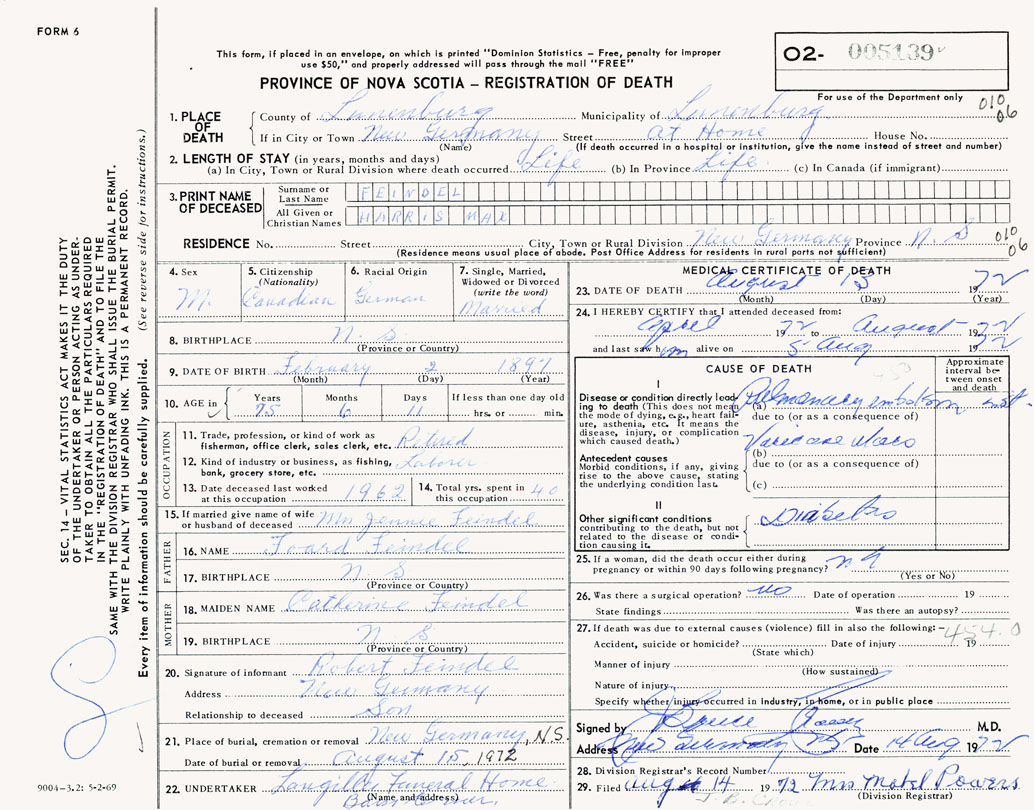 FORM 6
This form, if placed in an envelope, on which is printed "Dominion Statistics – Free, penalty for improper
use $50," and properly addressed will pass through the mail "FREE"
O2- 005139
PROVINCE OF NOVA SCOTIA – REGISTRATION OF DEATH
For use of the Department only
010
06
1. PLACE OF DEATH
County of Lunenburg Municipality of Lunenburg
If in City or Town New Germany Street at Home House No.
(Name) (If death occurred in a hospital or institution, give the name instead of street and number)
2. LENGTH OF STAY (in years, months and days)
(a) In City, Town or Rural Division where death occurred Life (b) In Province Life (c) In Canada (if immigrant)
3. PRINT NAME OF DECEASED
Surname or Last Name FEINDEL
All Given or Christian Names HARRIS MAX
RESIDENCE No. Street City, Town or Rural Division New Germany Province N. S
010
06
(Residence means usual place of abode. Post Office Address for residents in rural parts not sufficient)
4. Sex M.
5. Citizenship (Nationality) Canadian
6. Racial Origin German
7. Single, Married, Widowed or Divorced (write the word) Married
8. BIRTHPLACE N. S
(Province or Country)
9. DATE OF BIRTH February 2 1897
(Month) (Day) (Year)
10. AGE in Years 75 Months 6 Days 11 If less than one day old hrs. or min.
OCCUPATION
11. Trade, profession, or kind of work as fisherman, office clerk, sales clerk, etc. Retired
12. Kind of industry or business, as fishing, bank, grocery store, etc. Laborer
13. Date deceased last worked at this occupation 1962
14. Total yrs. spent in this occupation 40
15. If married give name of wife or husband of deceased Mrs Jennie Feindel
FATHER
16. NAME Feindel
17. BIRTHPLACE N. S
(Province or Country)
MOTHER
18. MAIDEN NAME Catherine Feindel
19. BIRTHPLACE N. S
(Province or Country)
20. Signature of informant Robert Feindel
Address New Germany
Relationship to deceased Son
21. Place of burial, cremation or removal New Germany, N.S.
Date of burial or removal August 15, 1972
22. UNDERTAKER Langille Funeral Home
(Name and address)
MEDICAL CERTIFICATE OF DEATH
23. DATE OF DEATH August 13 1972
(Month) (Day) (Year)
24. I HEREBY CERTIFY that I attended deceased from:
April 1972 to August 1972
and last saw him alive on 5 Aug 1972
CAUSE OF DEATH
Approximate interval between onset and death
I
Disease or condition directly leading to death (This does not mean the mode of dying, e.g., heart failure, asthenia, etc. It means the disease, injury, or complication which caused death.)
(a) Pulmonary embolism
due to (or as a consequence of)
Antecedent causes
Morbid conditions, if any, giving rise to the above cause, stating the underlying condition last.
(b) Varicose
due to (or as a consequence of)
(c)
II
Other significant conditions contributing to the death, but not related to the disease or condition causing it.
Diabetes
25. If a woman, did the death occur either during pregnancy or within 90 days following pregnancy?
(Yes or No)
26. Was there a surgical operation? no Date of operation 19
State findings Was there an autopsy?
27. If death was due to external causes (violence) fill in also the following:– 454.0
Accident, suicide or homicide? Date of injury 19
(State which)
Manner of injury
(How sustained)
Nature of injury
Specify whether injury occurred in industry, in home, or in public place
Signed by Bruce M.D.
Address New Germany NS Date 14 Aug 1972
28. Division Registrar's Record Number
29. Filed Aug 14 1972 Mrs Powers
(Division Registrar)
SEC. 14 – VITAL STATISTICS ACT MAKES IT THE DUTY
OF THE UNDERTAKER OR PERSON ACTING AS UNDER-
TAKER TO OBTAIN ALL THE PARTICULARS REQUIRED
IN THE "REGISTRATION OF DEATH" AND TO FILE THE
SAME WITH THE DIVISION REGISTRAR WHO SHALL ISSUE THE BURIAL PERMIT.
WRITE PLAINLY WITH UNFADING INK. THIS IS A PERMANENT RECORD.
Every item of information should be carefully supplied. (See reverse side for instructions.)
9004–3.2: 5-2-69